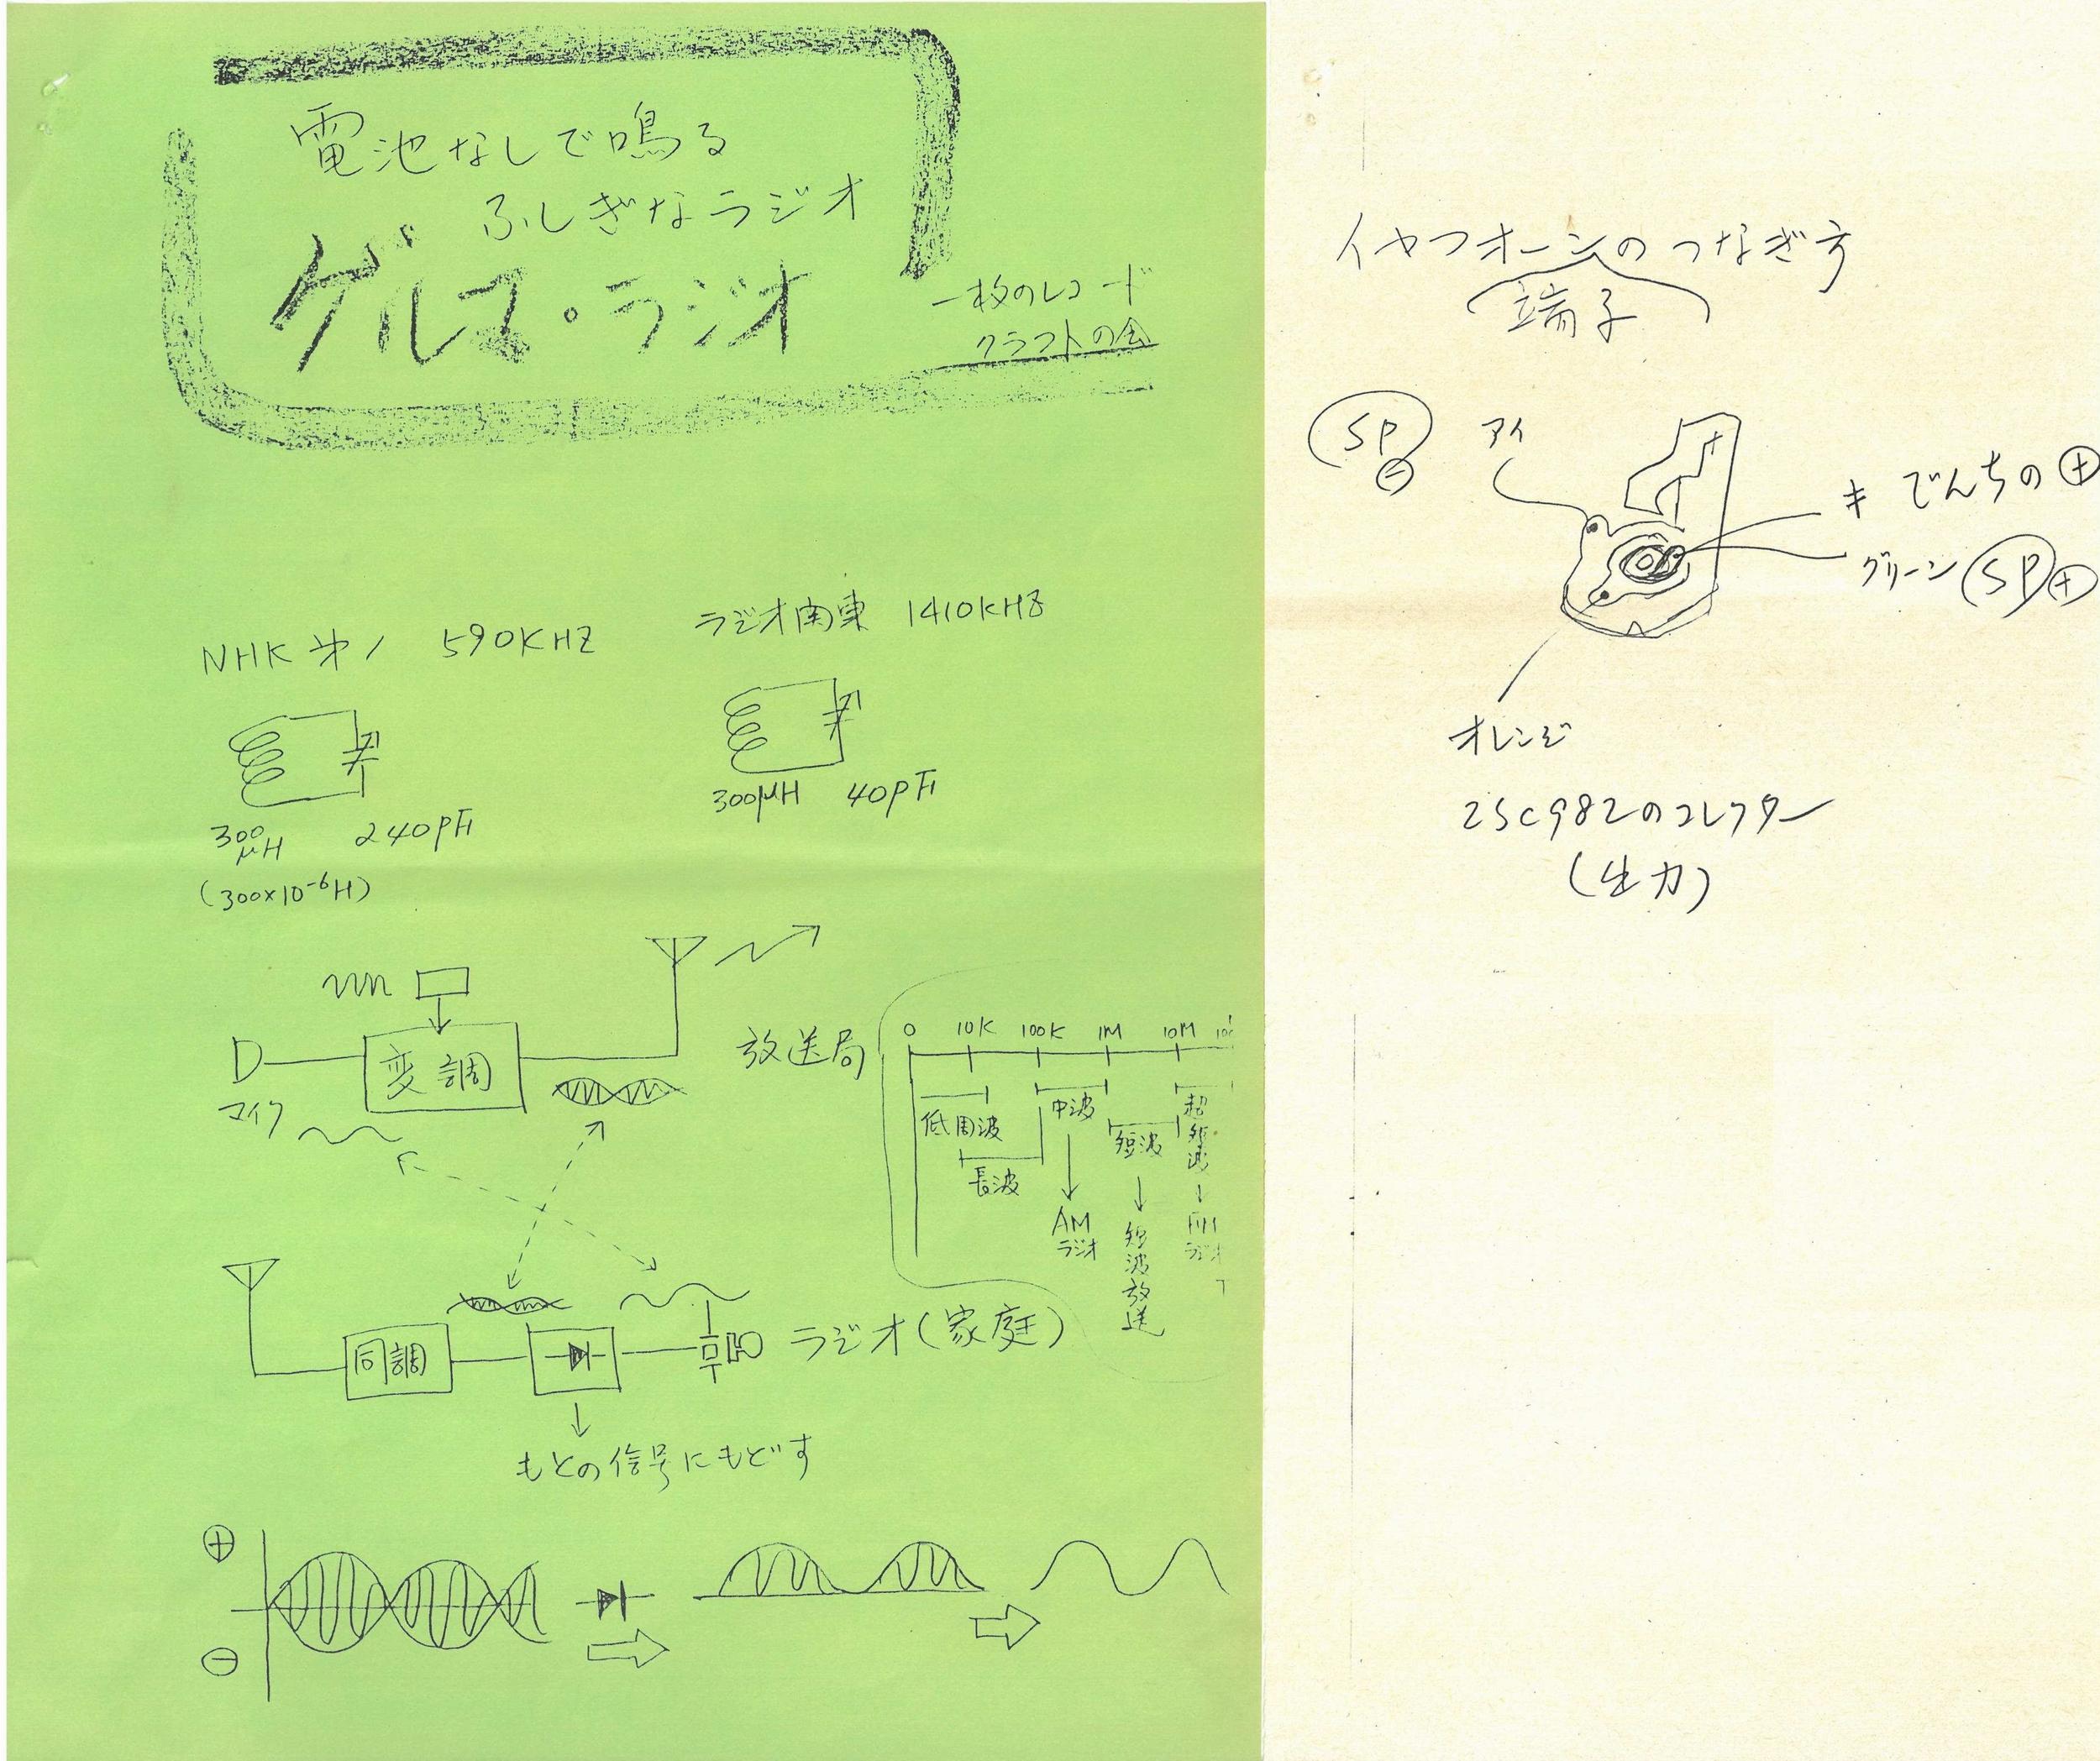 電池なしで鳴る
ふしぎなラジオ
ゲルマ・ラジオ
一枚のレコード
クラフトの会
NHK 第1 590KHZ
ラジオ関東 1410KHZ
300μH 240PF
(300×10⁻⁶H)
300μH 40PF
変調
マイク
放送局
0 10K 100K 1M 10M
低周波
長波
中波
短波
超短波
AM
ラジオ
短波放送
FM
ラジオ
同調
ラジオ(家庭)
もとの信号にもどす
⊕
⊖
イヤフォーンのつなぎ方
端子
SP
⊖
アイ
キ でんちの⊕
グリーン SP⊕
オレンジ
2SC982のコレクター
(出力)